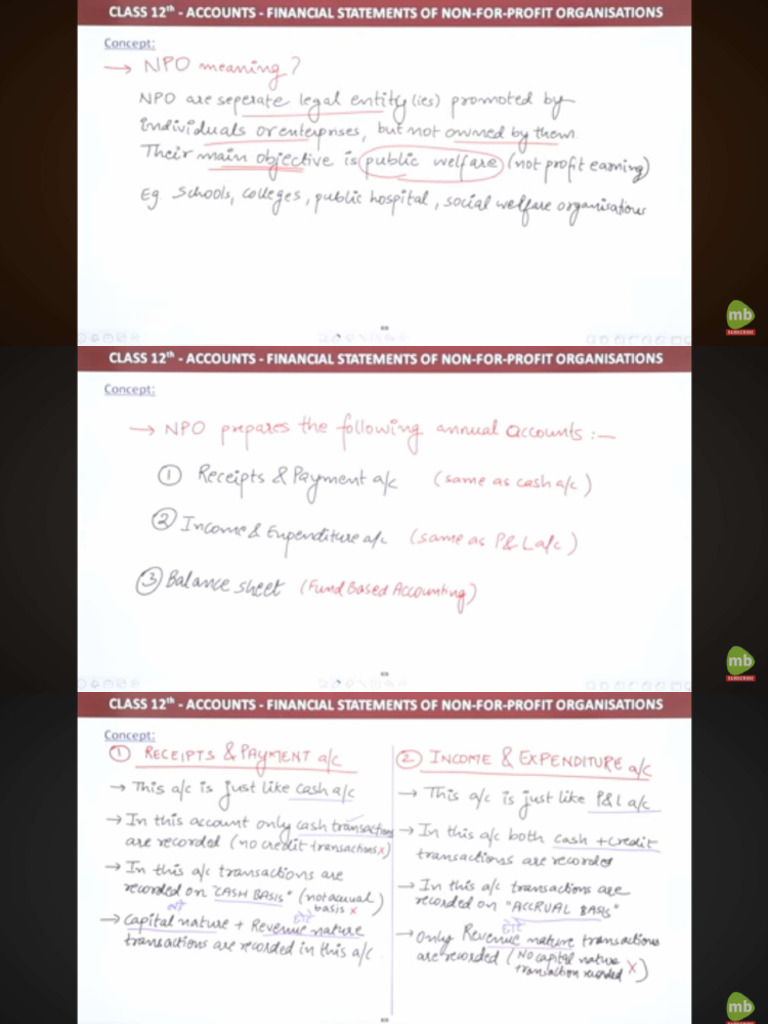 CLASS 12th - ACCOUNTS - FINANCIAL STATEMENTS OF NON-FOR-PROFIT ORGANISATIONS
Concept:
→ NPO meaning?
NPO are seperate legal entity (ies) promoted by
individuals or enterprises, but not owned by them.
Their main objective is public welfare (not profit earning)
Eg. Schools, colleges, public hospital, social welfare organisations
mb
SUBSCRIBE
CLASS 12th - ACCOUNTS - FINANCIAL STATEMENTS OF NON-FOR-PROFIT ORGANISATIONS
Concept:
→ NPO prepares the following annual accounts :-
① Receipts & Payment a/c (same as cash a/c)
② Income & Expenditure a/c (same as P&L a/c)
③ Balance sheet (Fund Based Accounting)
mb
SUBSCRIBE
CLASS 12th - ACCOUNTS - FINANCIAL STATEMENTS OF NON-FOR-PROFIT ORGANISATIONS
Concept:
① RECEIPTS & PAYMENT a/c
→ This a/c is just like cash a/c
→ In this account only cash transactions
are recorded (no credit transactions x)
→ In this a/c transactions are
recorded on "CASH BASIS" (not accrual
basis x)
→ Capital nature + Revenue nature
transactions are recorded in this a/c.
② INCOME & EXPENDITURE a/c
→ This a/c is just like P&L a/c
→ In this a/c both cash + credit
transactions are recorded
→ In this a/c transactions are
recorded on "ACCRUAL BASIS"
→ only Revenue nature transactions
are recorded (No capital nature
transaction recorded x)
mb
SUBSCRIBE